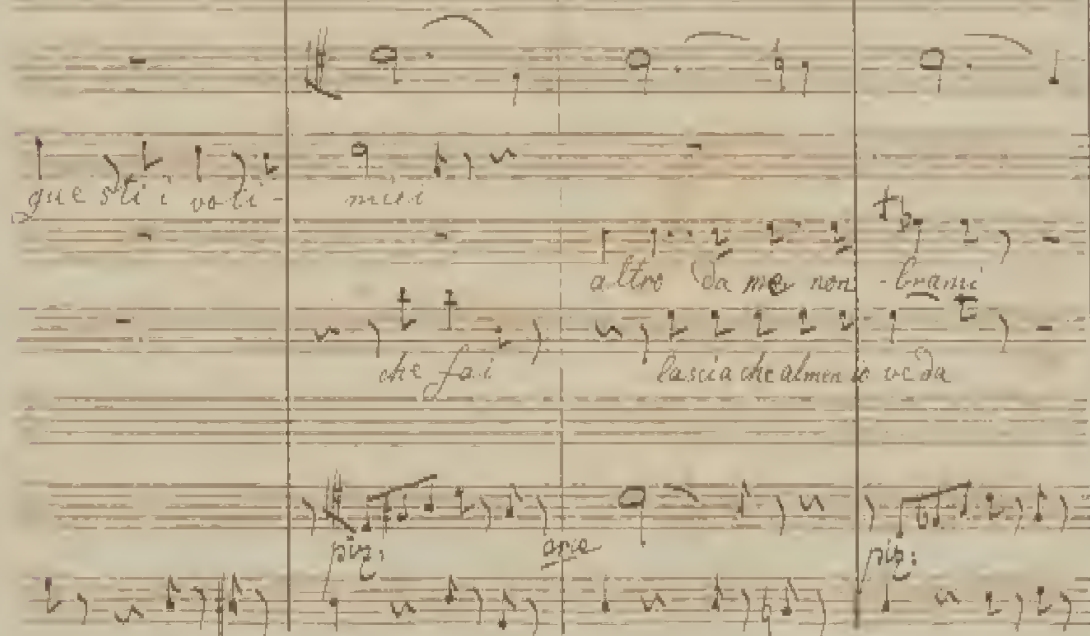 questi i voti - miei
altro da me non - brami
che fai lascia che almen io veda
piz: arco piz: